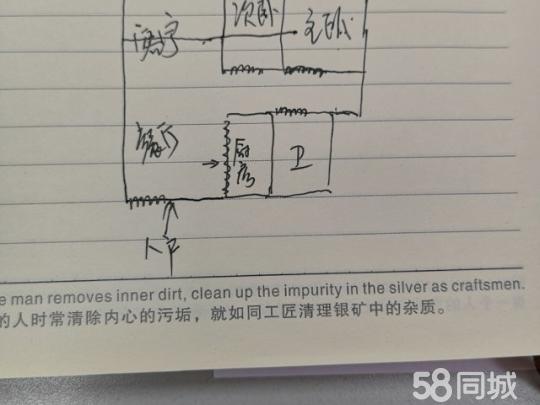 次卧
主卧
客厅
餐厅
厨房
卫
入户
e man removes inner dirt, clean up the impurity in the silver as craftsmen.
的人时常清除内心的污垢，就如同工匠清理银矿中的杂质。
58同城